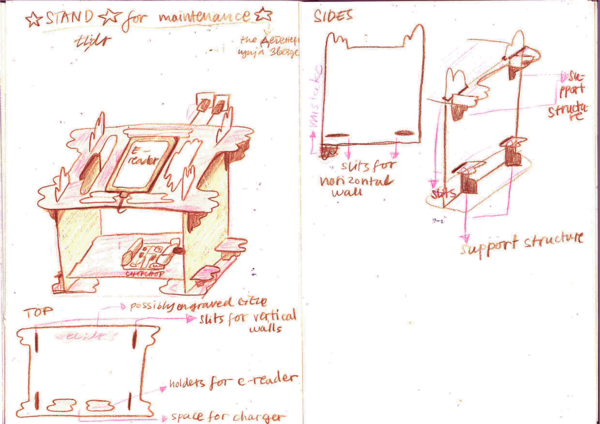 STAND for maintenance
the
E-
reader
TOP
possibly engraved title
slits for vertical
walls
holders for e-reader
space for charger
SIDES
mistake
slits for
horizontal
wall
su-
pport
structu-
re
slits
support structure